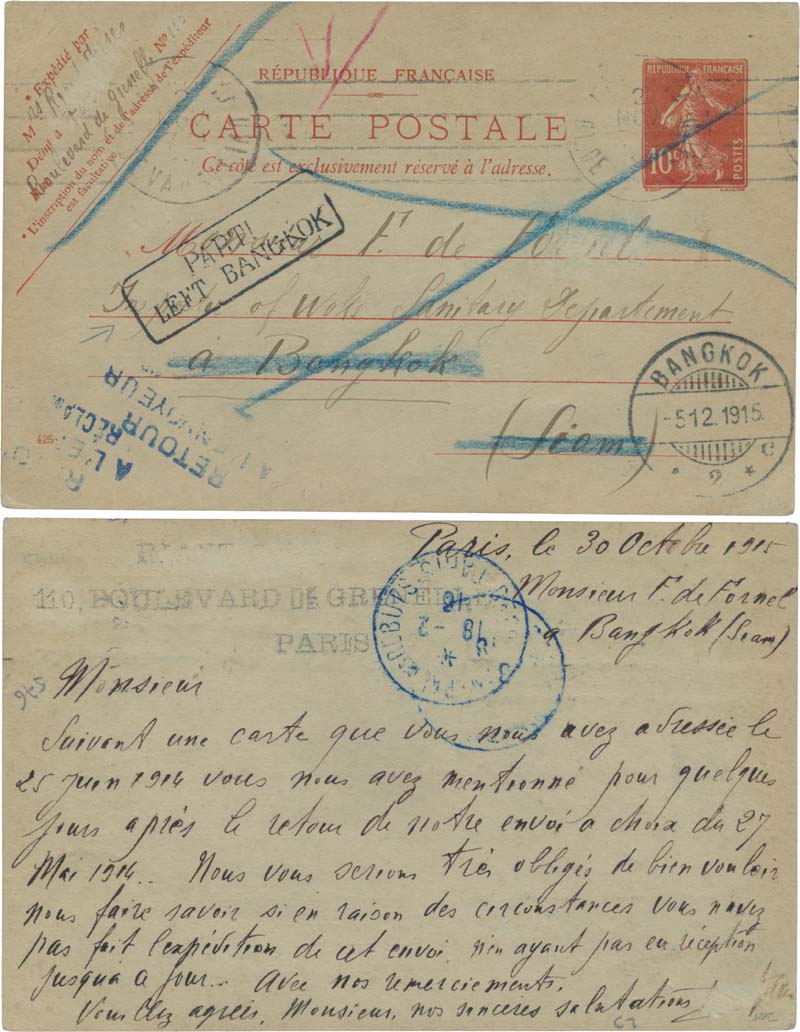 • Expédié par
M
Demt à
Boulevard de Grenelle No 110
• L'inscription du nom et de l'adresse de l'expéditeur
est facultative.
RÉPUBLIQUE FRANÇAISE
CARTE POSTALE
Ce côté est exclusivement réservé à l'adresse.
RÉPUBLIQUE FRANÇAISE
10c
POSTES
PARTI
LEFT BANGKOK
F. de Fornel
Inspector of Wells Sanitary Department
à Bangkok
(Siam)
RETOUR
A L'ENVOYEUR
425
BANGKOK
-5.12.1915.
* 2 * C
110, BOULEVARD DE GRENELLE
PARIS
Paris, le 30 Octobre 1915
Monsieur F. de Fornel
à Bangkok (Siam)
Monsieur
Suivant une carte que vous nous avez adressée le
25 Juin 1914 vous nous avez mentionné pour quelques
jours après le retour de notre envoi à choix du 27
Mai 1914.. Nous vous serions très obligés de bien vouloir
nous faire savoir si en raison des circonstances vous n'avez
pas fait l'expédition de cet envoi, n'en ayant pas eu réception
jusqu'à ce jour.. Avec nos remerciements.
Veuillez agréer, Monsieur, nos sincères salutations